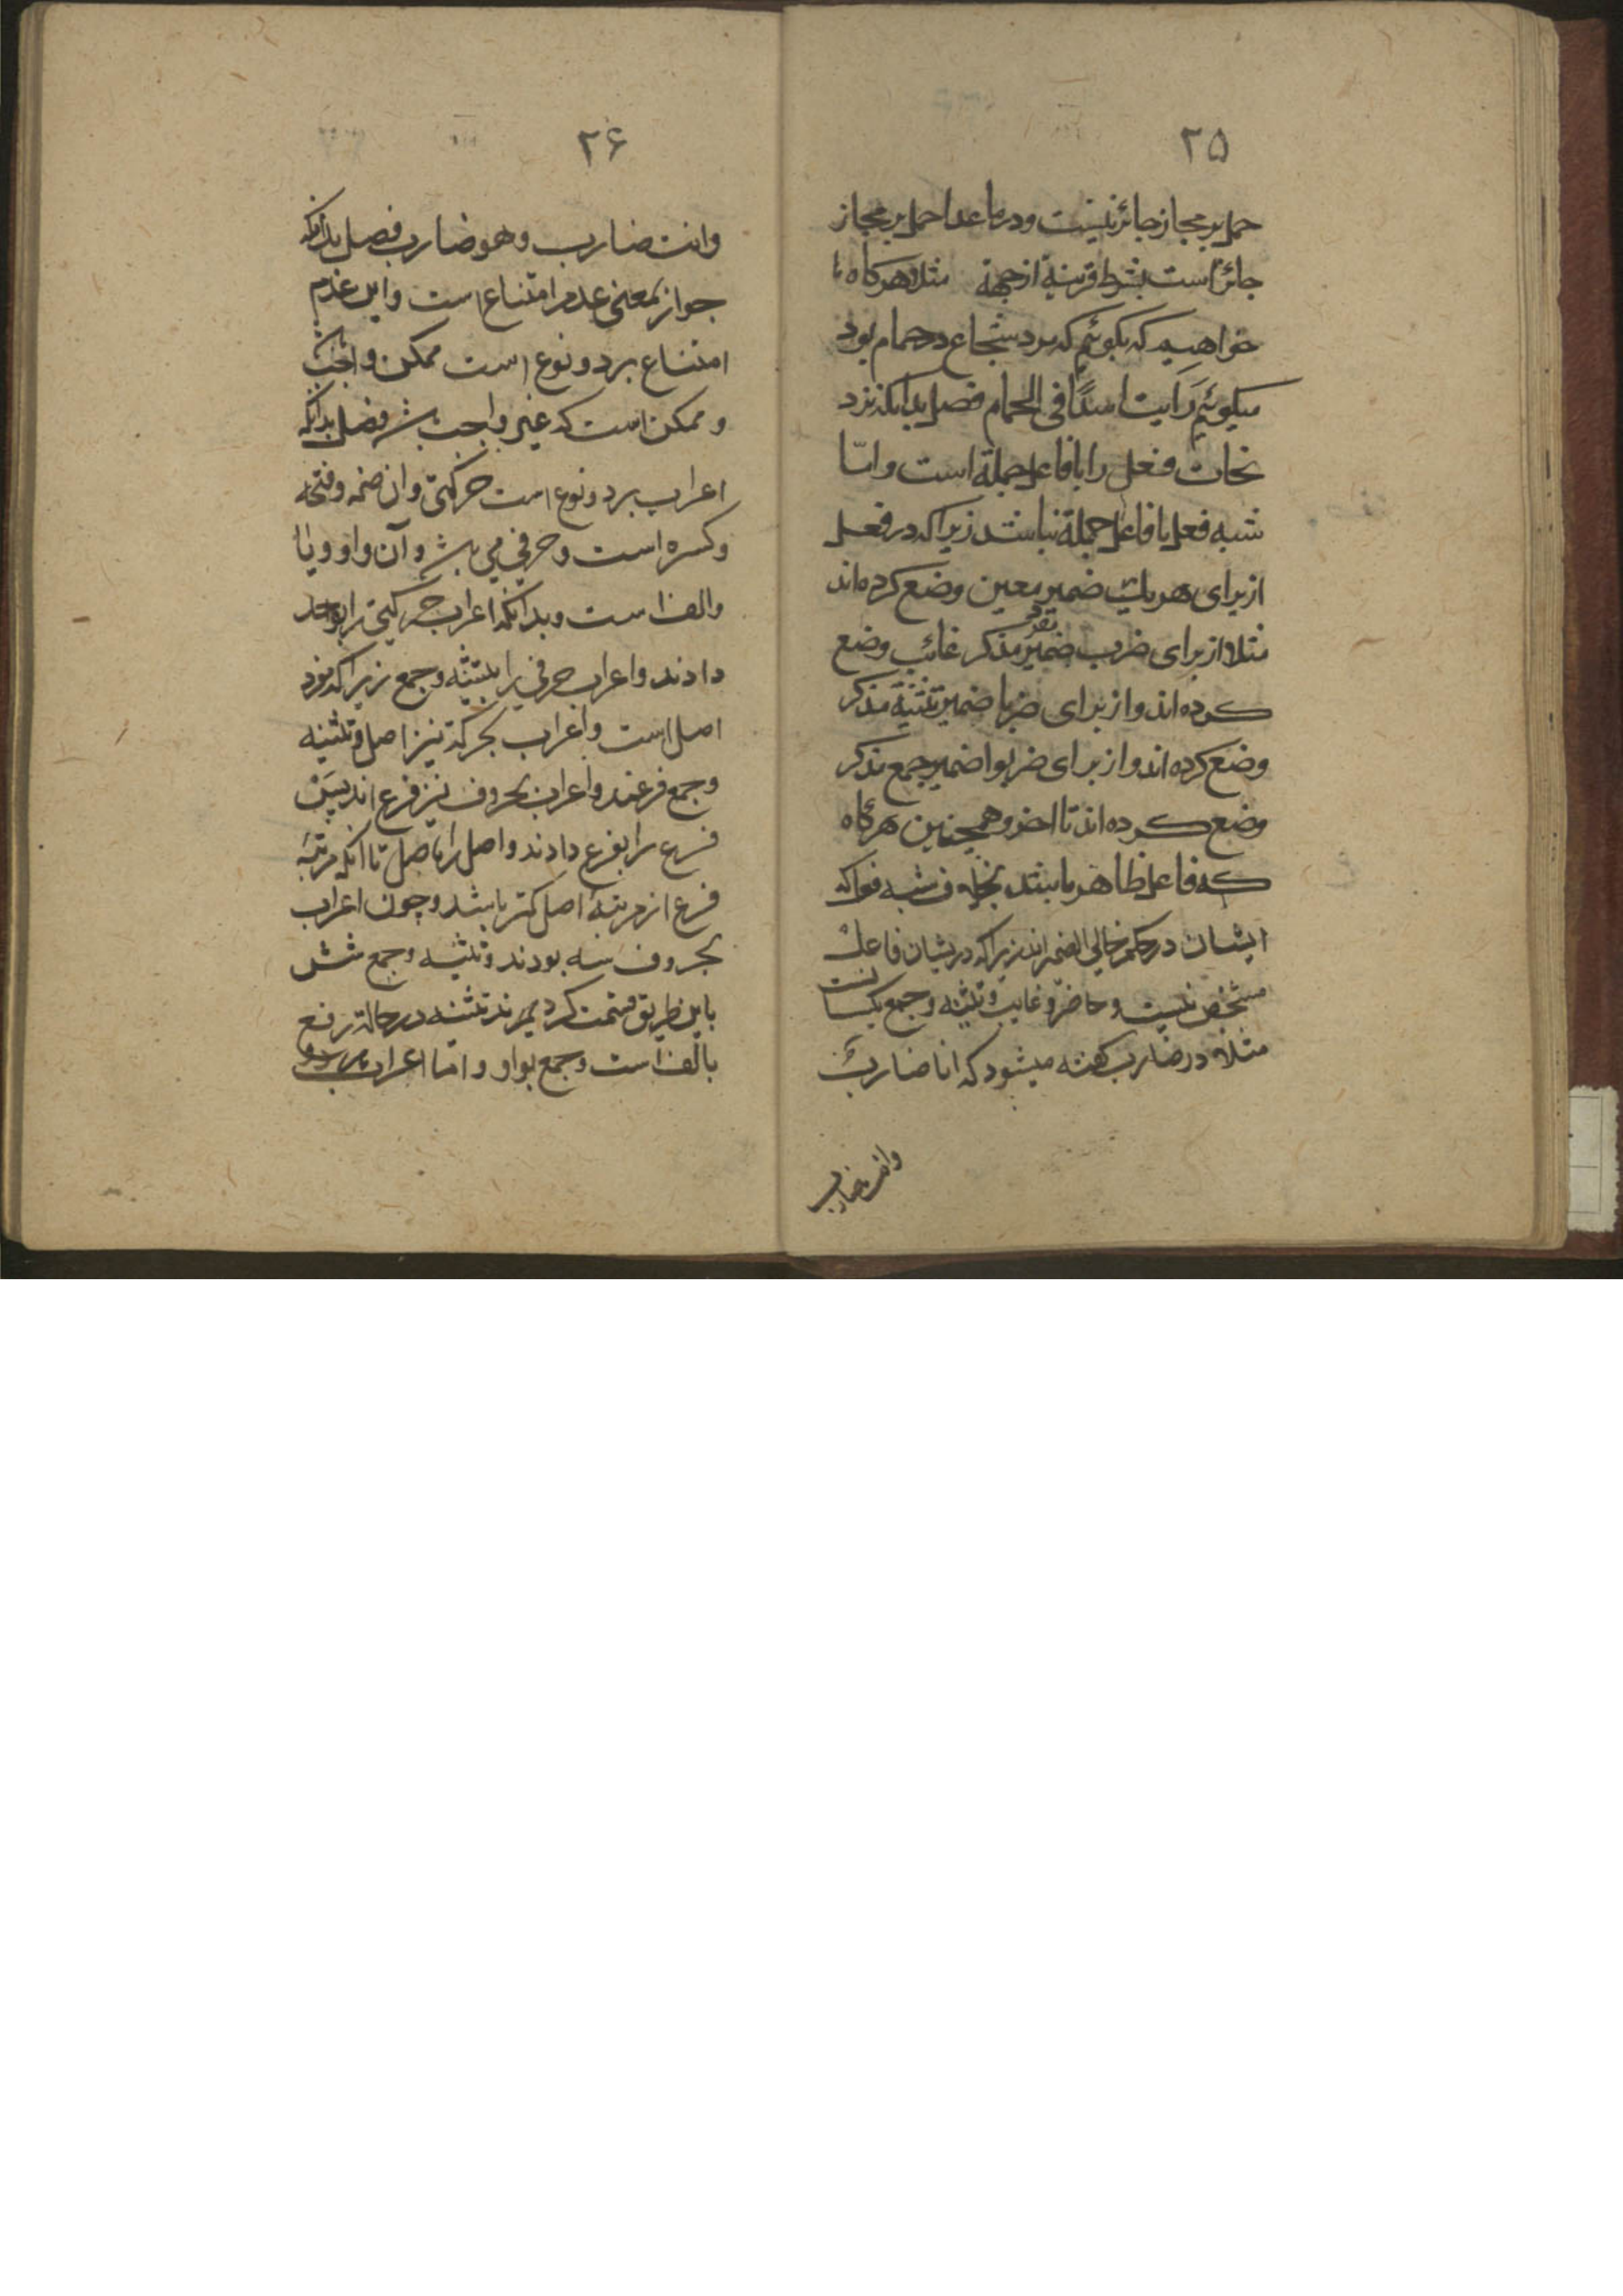 ۲۵
حمل بر مجاز جائز نیست و در ما عدا حمل بر مجاز
جائز است بشرط قرینة از جهة مثلا هرکاه ما
خواهیم که بکوئیم که مرد شجاع در حمام بود
میکوئیم رَایت اسدًا فی الحمام فصل بدانکه نزد
نحات فعل را با فاعل جملة است و امّا
شبه فعل با فاعل جملة نباشد زیرا که در فعل
از برای هریک ضمیر معین وضع کرده اند
مثلا از برای ضرب ضمیر مفرد مذکر غائب وضع
کرده اند و از برای ضربا ضمیر تثنیة مذکر
وضع کرده اند و از برای ضربوا ضمیر جمع مذکر
وضع کرده اند تا اخر و همچنین هرکاه
که فاعل ظاهر باشد بخلاف شبه فعل که
ایشان در حکم خالی الضمیر اند زیرا که در یشان فاعل
مشخص نیست و حاضر و غایب و تثنیه و جمع یکسانست
مثلا در ضارب کفته میشود که انا ضاربٌ
وانت ضارب
۲۶
وانت ضارب وهو ضارب فصل بدانکه
جواز بمعنی عدم امتناع است و این عدم
امتناع بر دو نوع است ممکن و واجب
و ممکن است که غیر واجب باشد فصل بدانکه
اعراب بر دو نوع است حرکتی و ان ضمه و فتحه
و کسره است و حرفی می باشد و آن واو و یا
والف است و بدانکه اعراب حرکتی را بواحد
دادند و اعراب حرفی را بتثنیه و جمع زیرا که مفرد
اصل است و اعراب بحرکة نیز اصل و تثنیه
و جمع فرعند و اعراب بحروف نیز فرع اند پس
فرع را بفرع دادند و اصل را باصل تا انکه مرتبهٔ
فرع از مرتبهٔ اصل کمتر باشد و چون اعراب
بحروف سه بودند و تثنیه و جمع شش
باین طریق قسمت کردیم ند تثنیه در حالة رفع
بالف است و جمع بواو و امّا اعراب